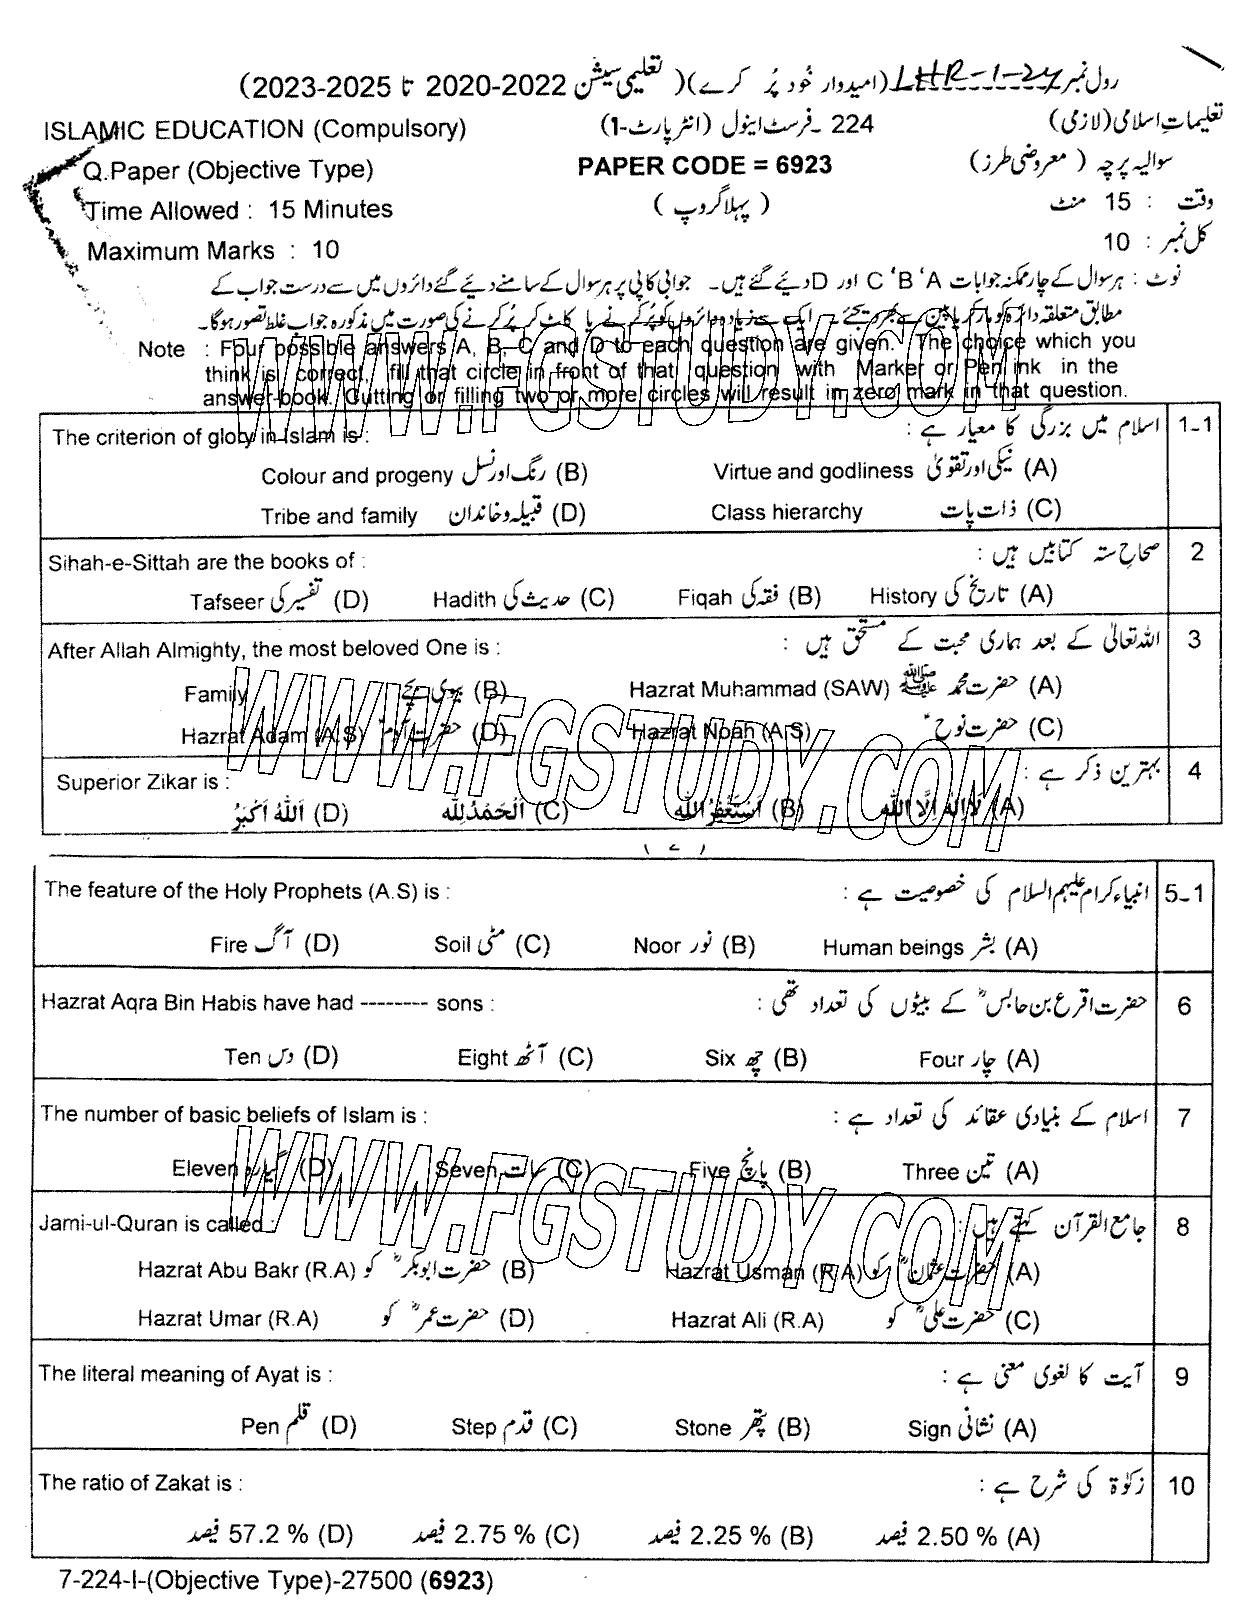 رول نمبر LHR-1-24 (امیدوار خُود پُر کرے) (تعلیمی سیشن 2020-2022 تا 2023-2025)
ISLAMIC EDUCATION (Compulsory) 224 ـ فرسٹ اینول (انٹر پارٹ-1) تعلیماتِ اسلامی (لازمی)
Q.Paper (Objective Type) PAPER CODE = 6923 سوالیہ پرچہ ( معروضی طرز)
Time Allowed : 15 Minutes ( پہلا گروپ ) وقت : 15 منٹ
Maximum Marks : 10 کل نمبر : 10
نوٹ : ہر سوال کے چار ممکنہ جوابات A ' B ' C اور D دیئے گئے ہیں۔ جوابی کاپی پر ہر سوال کے سامنے دیئے گئے دائروں میں سے درست جواب کے
مطابق متعلقہ دائرہ کو مارکر یا پین سے بھر دیجئے۔ ایک سے زیادہ دائروں کو پُر کرنے یا کاٹ کر پُر کرنے کی صورت میں مذکورہ جواب غلط تصور ہوگا۔
Note : Four possible answers A, B, C and D to each question are given. The choice which you
think is correct, fill that circle in front of that question with Marker or Pen ink in the
answer-book. Cutting or filling two or more circles will result in zero mark in that question.
The criterion of glory in Islam is : اسلام میں بزرگی کا معیار ہے : 1-1
Colour and progeny رنگ اور نسل (B) Virtue and godliness نیکی اور تقویٰ (A)
Tribe and family قبیلہ و خاندان (D) Class hierarchy ذات پات (C)
Sihah-e-Sittah are the books of : صحاحِ ستہ کتابیں ہیں : 2
Tafseer تفسیر کی (D) Hadith حدیث کی (C) Fiqah فقہ کی (B) History تاریخ کی (A)
After Allah Almighty, the most beloved One is : اللہ تعالیٰ کے بعد ہماری محبت کے مستحق ہیں : 3
Family بیوی بچے (B) Hazrat Muhammad (SAW) حضرت محمد ﷺ (A)
Hazrat Adam (A.S) حضرت آدمؑ (D) Hazrat Noah (A.S) حضرت نوحؑ (C)
Superior Zikar is : بہترین ذکر ہے : 4
اَللّٰهُ اَكْبَرُ (D) اَلْحَمْدُلِلّٰه (C) اَسْتَغْفِرُاللّٰه (B) لَا اِلٰهَ اِلَّا اللّٰه (A)
( 2 )
The feature of the Holy Prophets (A.S) is : انبیاء کرام علیہم السلام کی خصوصیت ہے : 5-1
Fire آگ (D) Soil مٹی (C) Noor نور (B) Human beings بشر (A)
Hazrat Aqra Bin Habis have had -------- sons : حضرت اقرع بن حابسؓ کے بیٹوں کی تعداد تھی : 6
Ten دس (D) Eight آٹھ (C) Six چھ (B) Four چار (A)
The number of basic beliefs of Islam is : اسلام کے بنیادی عقائد کی تعداد ہے : 7
Eleven گیارہ (D) Seven سات (C) Five پانچ (B) Three تین (A)
Jami-ul-Quran is called : جامع القرآن کہتے ہیں : 8
Hazrat Abu Bakr (R.A) حضرت ابوبکرؓ کو (B) Hazrat Usman (R.A) حضرت عثمانؓ کو (A)
Hazrat Umar (R.A) حضرت عمرؓ کو (D) Hazrat Ali (R.A) حضرت علیؓ کو (C)
The literal meaning of Ayat is : آیت کا لغوی معنی ہے : 9
Pen قلم (D) Step قدم (C) Stone پتھر (B) Sign نشانی (A)
The ratio of Zakat is : زکوٰۃ کی شرح ہے : 10
57.2 % فیصد (D) 2.75 % فیصد (C) 2.25 % فیصد (B) 2.50 % فیصد (A)
7-224-I-(Objective Type)-27500 (6923)
WWW.FGSTUDY.COM
WWW.FGSTUDY.COM
WWW.FGSTUDY.COM